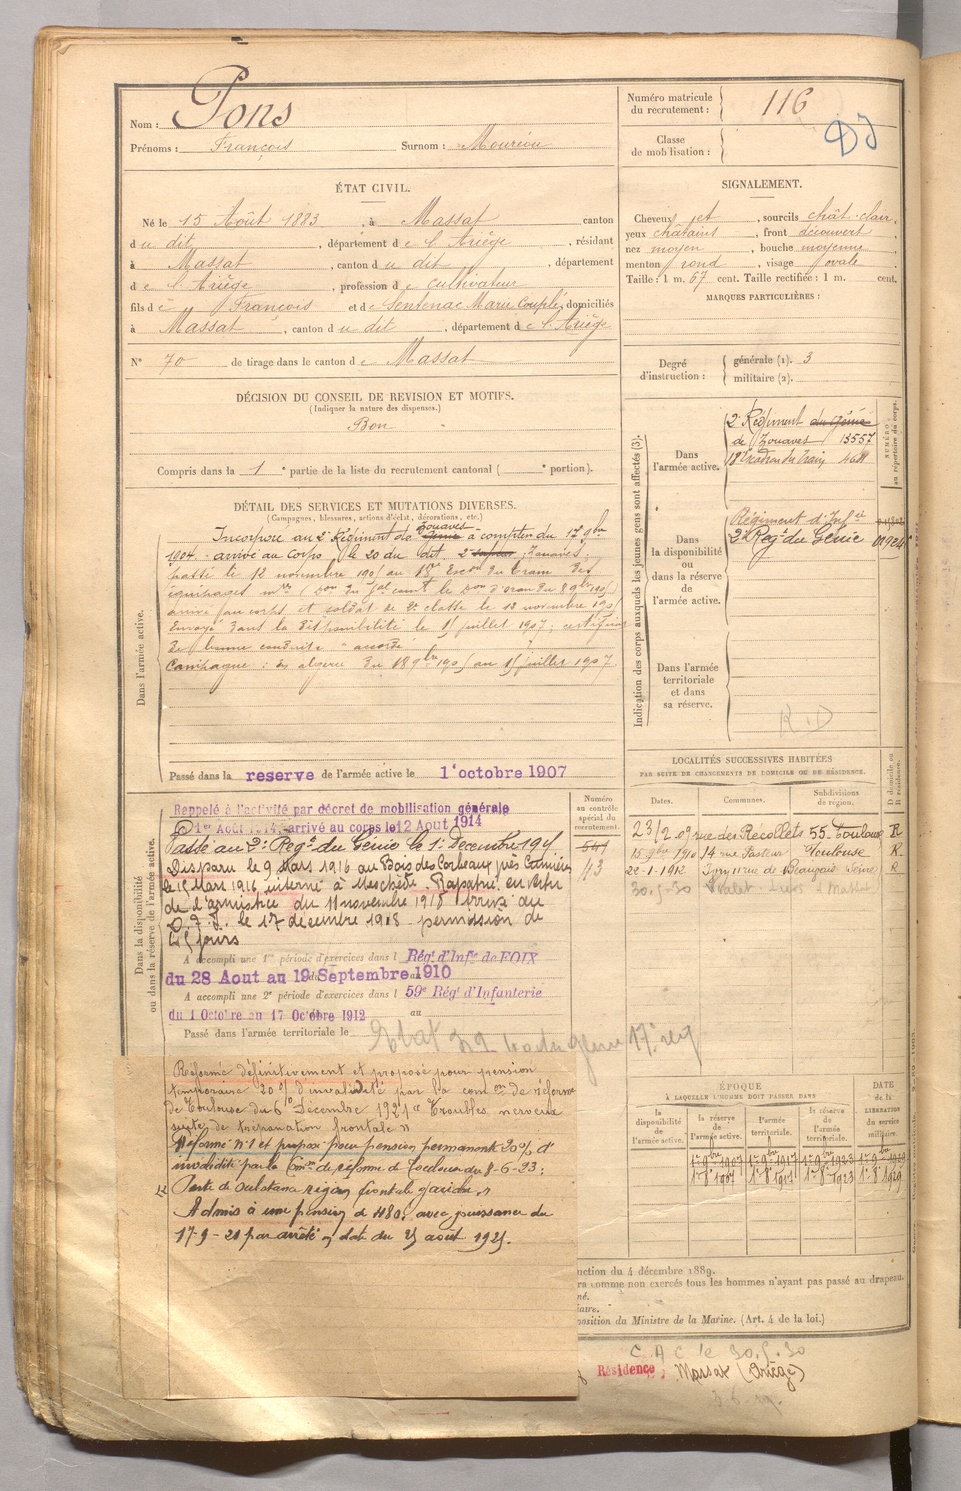 Nom : Pons
Prénoms : François Surnom : Mouréou
ÉTAT CIVIL.
Né le 15 Août 1883, à Massat canton
du dit, département de l'Ariège, résidant
à Massat, canton du dit, département
de l'Ariège, profession de cultivateur
fils de François et de Sentenac Marie Couplé, domiciliés
à Massat, canton du dit, département de l'Ariège
N° 70 de tirage dans le canton de Massat
DÉCISION DU CONSEIL DE REVISION ET MOTIFS.
(Indiquer la nature des dispenses.)
Bon
Compris dans la 1e partie de la liste du recrutement cantonal ( e portion).
DÉTAIL DES SERVICES ET MUTATIONS DIVERSES.
(Campagnes, blessures, actions d'éclat, décorations, etc.)
Zouaves
Incorporé au 2e Régiment de génie à compter du 17 9bre
1904. - arrivé au Corps, le 20 du dit, 2e sapeur Zouaves,
passé le 12 novembre 1905 au 18e Escon du train des
équipages mres
arrivé au corps et soldat de 2e classe le 13 novembre 1905
Envoyé dans la disponibilité le 15 juillet 1907 ; certificat
de bonne conduite accordé
Campagne : en algérie du 18 9bre 1905 au 15 juillet 1907
Dans l'armée active.
Passé dans la reserve de l'armée active le 1er octobre 1907
Dans la disponibilité
ou dans la réserve de l'armée active.
Rappelé à l'activité par décret de mobilisation générale
D 1er Août 1914, arrivé au corps le 12 Aout 1914
Passé au 2e Regt du Génie le 1er Décembre 1915
Disparu le 9 Mars 1916 au Bois des Corbeaux près Cumières
le 15 Mars 1916 interné à Meschède. Rapatrié en vertu
de l'armistice du 11 novembre 1918 Arrivé au
D. 7. I. le 17 décembre 1918 - permission de
45 jours
A accompli une 1re période d'exercices dans l Régt d'Infie de FOIX
du 28 Aout au 19 Septembre 1910
A accompli une 2e période d'exercices dans l 59e Régt d'Infanterie
du 1 Octobre au 17 Octobre 1912 au
Passé dans l'armée territoriale le
Réformé définitivement et proposé pour pension
temporaire 20 % d'invalidité par la comon de réforme
de Toulouse du 6 Décembre 1921 "Troubles nerveux
suite de trépanation frontale"
Réformé n°1 et proposé pour pension permanente 20% d'
invalidité par la Comon de réforme de Toulouse du 8-6-23 :
"Perte de substance région frontale gauche"
Admis à une pension de 480f avec jouissance du
17-9-21 par arrêté en date du 25 août 1925.
Numéro matricule
du recrutement : 116
Classe
de mobilisation :
SIGNALEMENT.
Cheveux et, sourcils chât-clair,
yeux châtains, front découvert
nez moyen, bouche moyenne
menton rond, visage ovale
Taille : 1 m. 67 cent. Taille rectifiée : 1 m. cent.
MARQUES PARTICULIÈRES :
Degré
d'instruction : générale (1). 3
militaire (2).
Indication des corps auxquels les jeunes gens sont affectés (3).
NUMÉRO
au répertoire du corps.
Dans
l'armée active.
2e Régiment du génie
de Zouaves 13557
18e Escadron du Train 4611
Dans
la disponibilité
ou
dans la réserve
de
l'armée active.
Régiment d'Infie
2e Regt du Génie
Dans l'armée
territoriale
et dans
sa réserve.
R.D
LOCALITÉS SUCCESSIVES HABITÉES
PAR SUITE DE CHANGEMENTS DE DOMICILE OU DE RÉSIDENCE.
Numéro
au contrôle
spécial du
recrutement.
Dates. Communes. Subdivisions
de région. D domicile ou
R résidence.
23/2 09 rue des Récollets 55 - Toulouse R
15 9bre 1910 14 rue Pasteur Toulouse R
22-1-1912 11 rue de Beaujour Seine R
30-5-30 Massat
ÉPOQUE
À LAQUELLE L'HOMME DOIT PASSER DANS
DATE
de la
LIBÉRATION
du service
militaire.
la
disponibilité
de
l'armée active.
la réserve
de
l'armée active.
l'armée
territoriale.
la réserve
de
l'armée
territoriale.
1er 9bre 1907 1er 9bre 1917 1er 9bre 1923 1er 9bre 1929
1er 8bre 1907 1er 8bre 1917 1er 8bre 1923 1er 8bre 1929
uction du 4 décembre 1889.
ra comme non exercés tous les hommes n'ayant pas passé au drapeau.
né.
iaire.
position du Ministre de la Marine. (Art. 4 de la loi.)
C A C le 30.5.30
Résidence : Massat (Ariège)